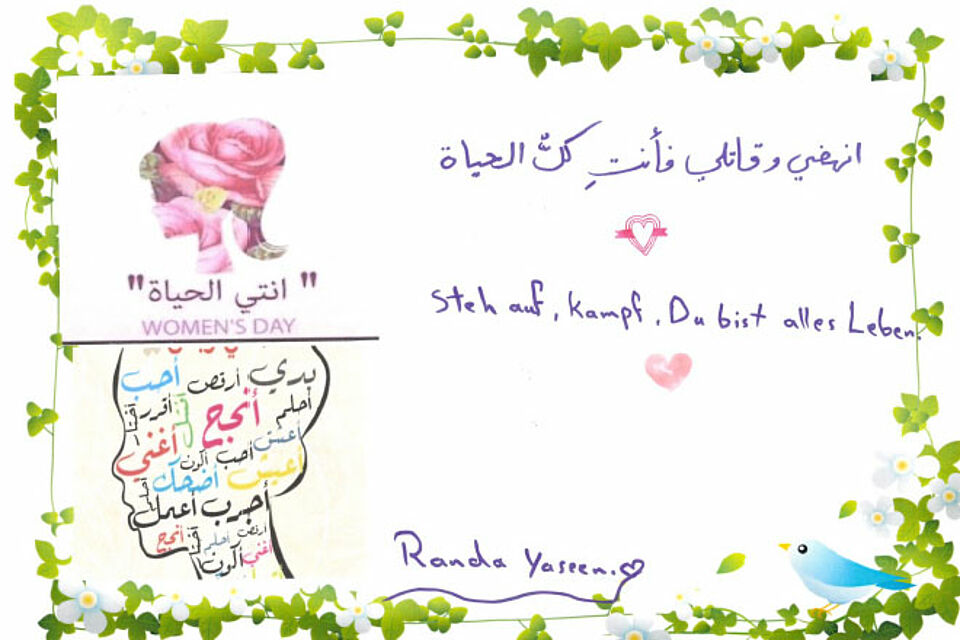 انهضي وقاتلي فأنتِ كلُّ الحياة
Steh auf, Kampf. Du bist alles Leben.
" انتي الحياة "
WOMEN'S DAY
بدي أرقص أحب
أحلم أنجح أقرر
أعشق أغني
أحب أكون
أعيش أضحك
أجرب أعمل
أرقص أحلم أنجح
أغني أكون
Randa Yaseen.